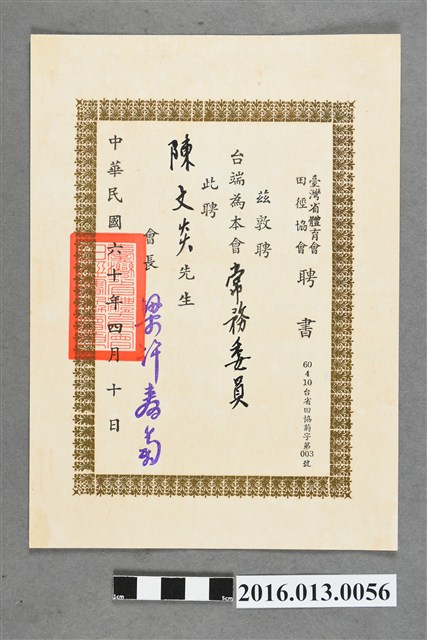 臺灣省體育會
田徑協會
聘書
60 4 10 台省田協菊字第003號
茲敦聘
台端為本會常務委員
此聘
陳文炎先生
會長
中華民國六十年四月十日
1cm
5cm
2016.013.0056